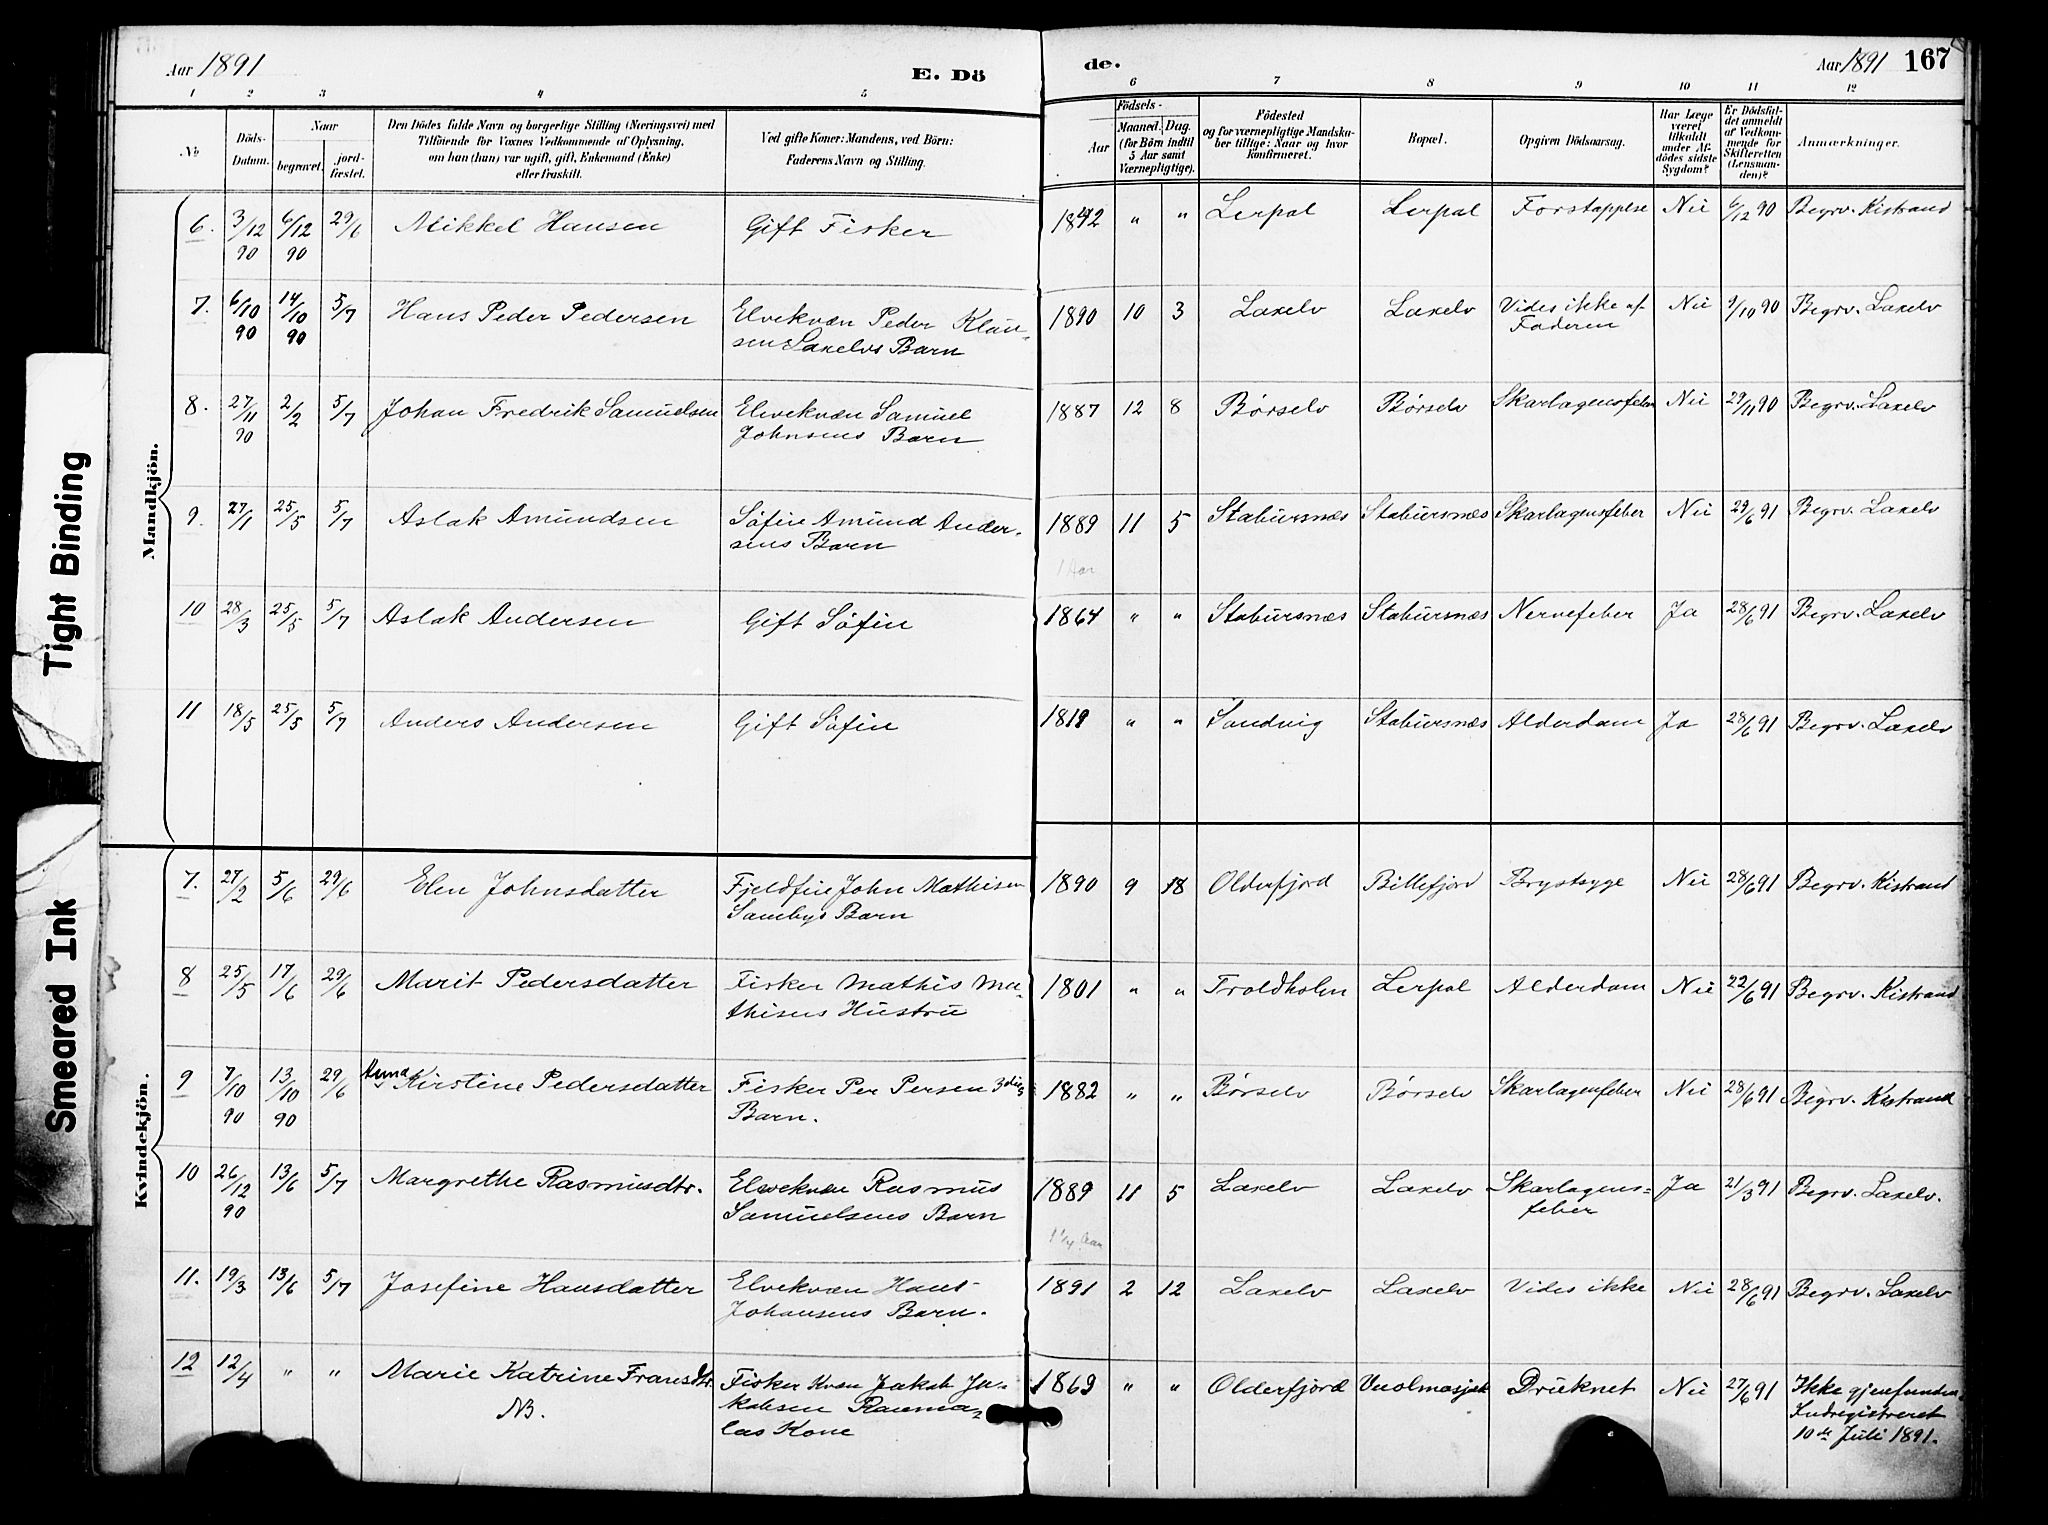 Aar 1891
E. Dö
de.
Aar 1891 167
1 2 3 4 5 6 7 8 9 10 11 12
No
Döds-
Datum.
Naar
begravet.
jord-
fæstet.
Den Dödes fulde Navn og borgerlige Stilling (Næringsvei) med
Tilföiende for Voxnes Vedkommende af Oplysning,
om han (hun) var ugift, gift, Enkemand (Enke)
eller fraskilt.
Ved gifte Koner: Mandens, ved Börn:
Faderens Navn og Stilling.
Födsels-
Aar
Maaned. Dag.
(for Börn indtil
5 Aar samt
Værnepligtige).
Födested
og for værnepligtige Mandska-
ber tillige: Naar og hvor
konfirmeret.
Bopæl.
Opgiven Dödsaarsag.
Har Læge
været
tilkaldt
under Af-
dödes sidste
Sygdom?
Er Dödsfal-
det anmeldt
af Vedkom-
mende for
Skifteretten
(Lensman-
den)?
Anmærkninger.
Mandkjön.
6. 3/12 90 6/12 90 29/6 Mikkel Hansen Gift Fisker 1842 " " Lerpol Lerpol Forstoppelse Nei 6/12 90 Begrv. Kistrand
7. 6/10 90 14/10 90 5/7 Hans Peder Pedersen Elvekvæn Peder Klau-
sen Laxelvs Barn 1890 10 3 Laxelv Laxelv Vides ikke af
Faderen Nei 9/10 90 Begrv. Laxelv
8. 27/11 90 2/2 5/7 Johan Fredrik Samuelsen Elvekvæn Samuel
Johnsens Barn 1887 12 8 Børselv Børselv Skarlagensfeber Nei 29/11 90 Begrv. Laxelv
9. 27/1 25/5 5/7 Aslak Amundsen Søfin Amund Ander-
sens Barn 1889 11 5 Stabursnæs Stabursnæs Skarlagensfeber Nei 29/6 91 Begrv. Laxelv
1 Aar
10 28/3 25/5 5/7 Aslak Andersen Gift Søfin 1864 " " Stabursnæs Stabursnæs Nervefeber Ja 28/6 91 Begrv. Laxelv
11 18/5 25/5 5/7 Anders Andersen Gift Søfin 1819 " " Sandvig Stabursnæs Alderdom Ja 28/6 91 Begrv. Laxelv
Kvindekjön.
7. 27/2 5/6 29/6 Elen Johnsdatter Fjeldfin John Mathisen
Sambys Barn 1890 9 18 Olderfjord Billefjord Brystsyge Nei 28/6 91 Begrv. Kistrand
8 25/5 17/6 29/6 Marit Pedersdatter Fisker Mathis Ma-
thisens Hustru 1801 " " Troldholm Lerpol Alderdom Nei 22/6 91 Begrv. Kistrand
9 7/10 90 13/10 90 29/6 Anna Kirstine Pedersdatter Fisker Per Persen
Barn. 1882 " " Børselv Børselv Skarlagenfeber Nei 28/6 91 Begrv. Kistrand
10 26/12 90 13/6 5/7 Margrethe Rasmusdtr. Elvekvæn Rasmus
Samuelsens Barn 1889 11 5 Laxelv Laxelv Skarlagens-
feber Ja 21/3 91 Begrv. Laxelv.
1 1/4 Aar
11. 19/3 13/6 5/7 Josefine Hansdatter Elvekvæn Hans
Johansens Barn. 1891 2 12 Laxelv Laxelv Vides ikke Nei 28/6 91 Begrv. Laxelv
12 12/4 " " Marie Katrine Fransdtr.
NB. Fisker Kvæn Jakob Ja-
kobsen Rauma-
las Kone 1869 " " Olderfjord Druknet Nei 27/6 91 Ikke gjenfunden
Indregistreret
10de Juli 1891.
Tight Binding
Smeared Ink